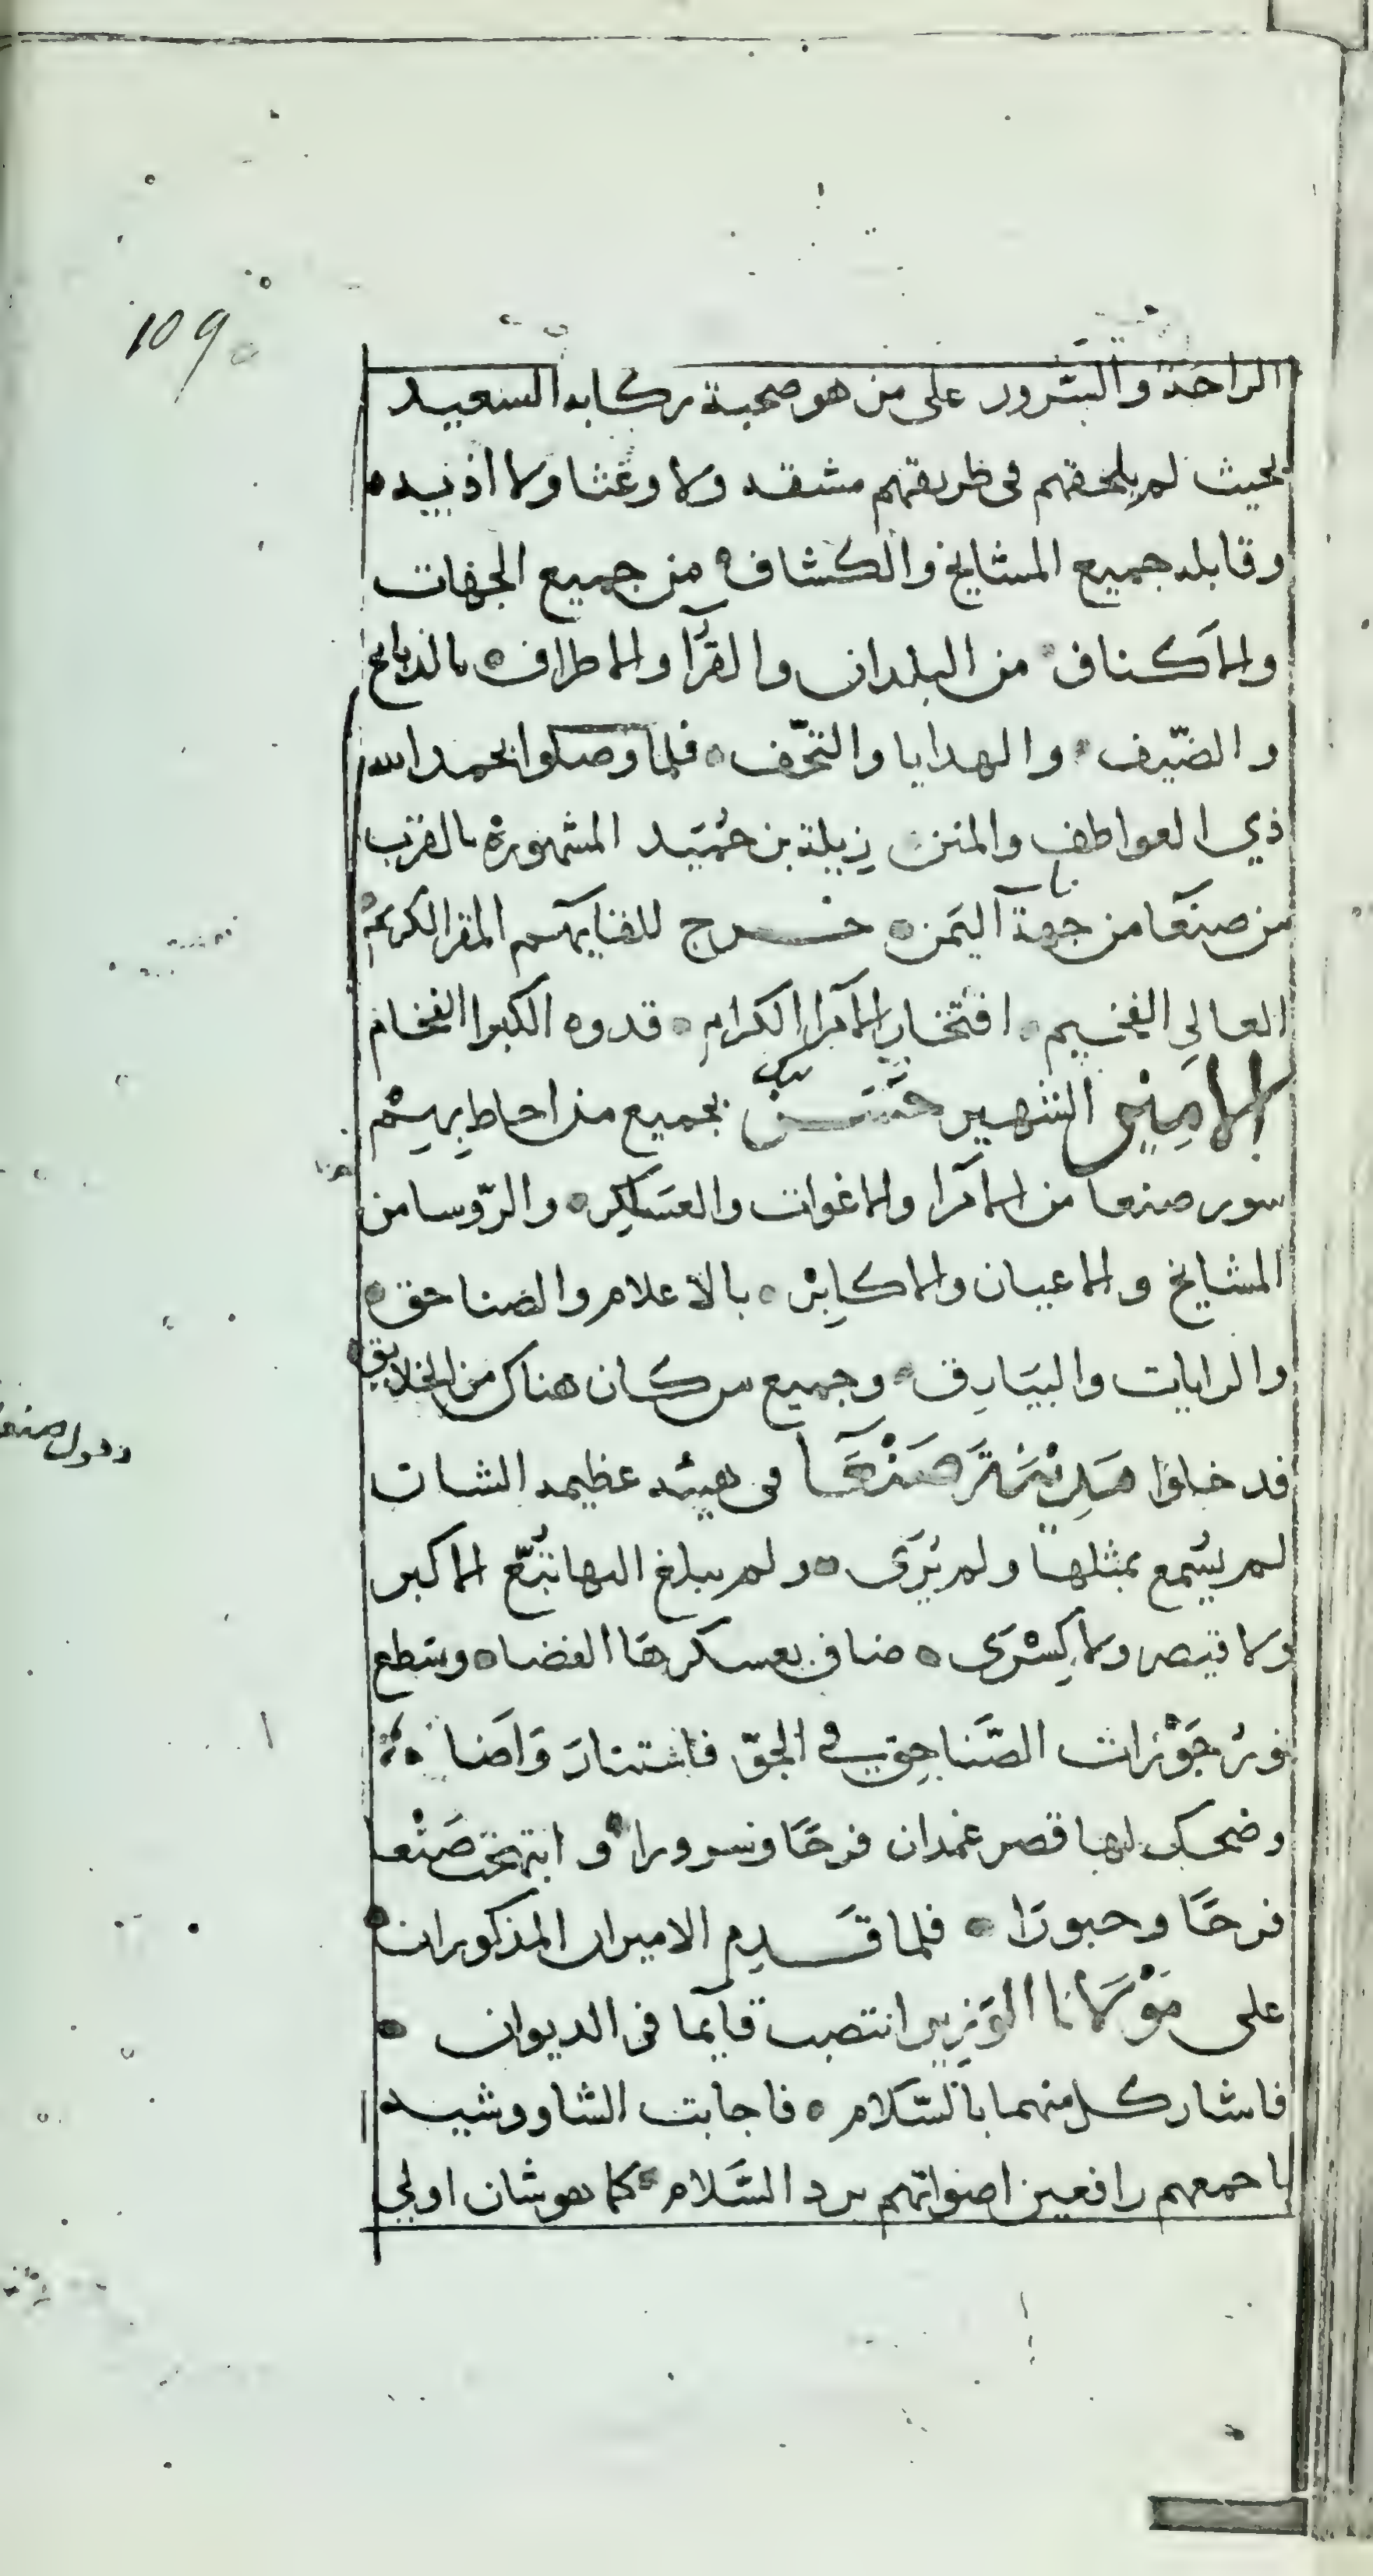 109
الراحة والسّرور على من هو صحبة ركابه السعيد
بحيث لم يلحقهم في طريقهم مشقه ولا وعثا ولا اذيه
وقابله جميع المشايخ والكشاف من جميع الجهات
والاكناف من البلدان والقرآ والاطراف بالذبايح
والضيّف والهدايا والتحّف فلما وصلوا بحمد الله
ذي العواطف والمنن زيلة بن حُمَيَد المشهورة بالقرب
من صنعَا من جهة اليَمن خرج للقايهم المقر الكريم
العالي الفخيم افتخار الامرا الكرام قدوه الكبرا الفخام
الامير الشهير حسَن بك بجميع من احاط بهم
سور صنعا من الامرا والاغوات والعسَاكر والرّوسا من
المشايخ والاعيان والاكابر بالاعلام والصناجق
والرايات والبيَارق وجميع من كان هناك من الخلايق
فدخلوا مَدِيْنَة صَنْعَا في هيئه عظيمه الشان
لم يسُمع بمثلها ولم يُرَى ولم يبلغ اليها تُبّع الاكبر
ولا قيصر ولا كِسْرَى ضاق بعسكرهَا الفضا وسَطع
نور جَوْزات الصَّناجق في الجوّ فاستنارَ وَاَضا
وضحك لها قصر غمدان فرحًا وسرورا و ابتهجت صَنْعا
فرحًا وحبورًا فلما قَدِم الاميران المذكوران
على مَوْلَانا الوَزير انتصب قآيما في الديوان
فاشار كل منهما بالسّلام فاجابت الشاووشيه
باجمعهم رافعين اصواتهم برد السَّلام كما هو شان اولي
دخول صنعا